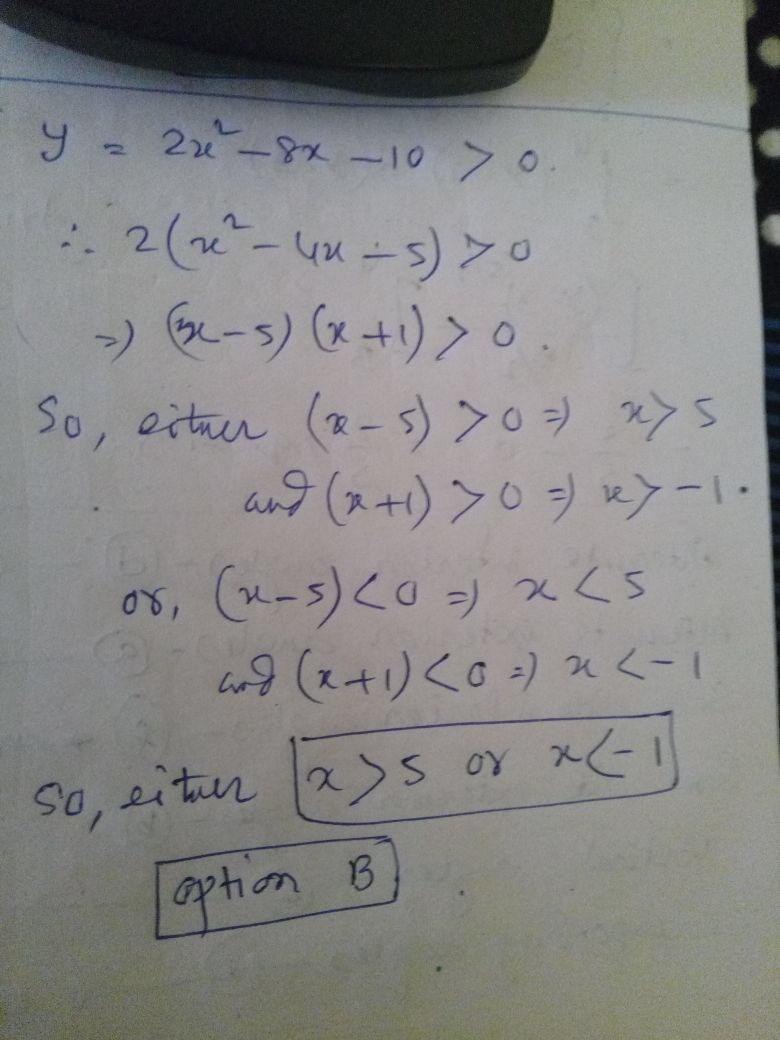 y = 2x² - 8x - 10 > 0.
∴ 2(x² - 4x - 5) > 0
=) (x - 5) (x + 1) > 0.
So, either (x - 5) > 0 =) x > 5
and (x + 1) > 0 =) x > -1.
or, (x - 5) < 0 =) x < 5
and (x + 1) < 0 =) x < -1
So, either x > 5 or x < -1
option B